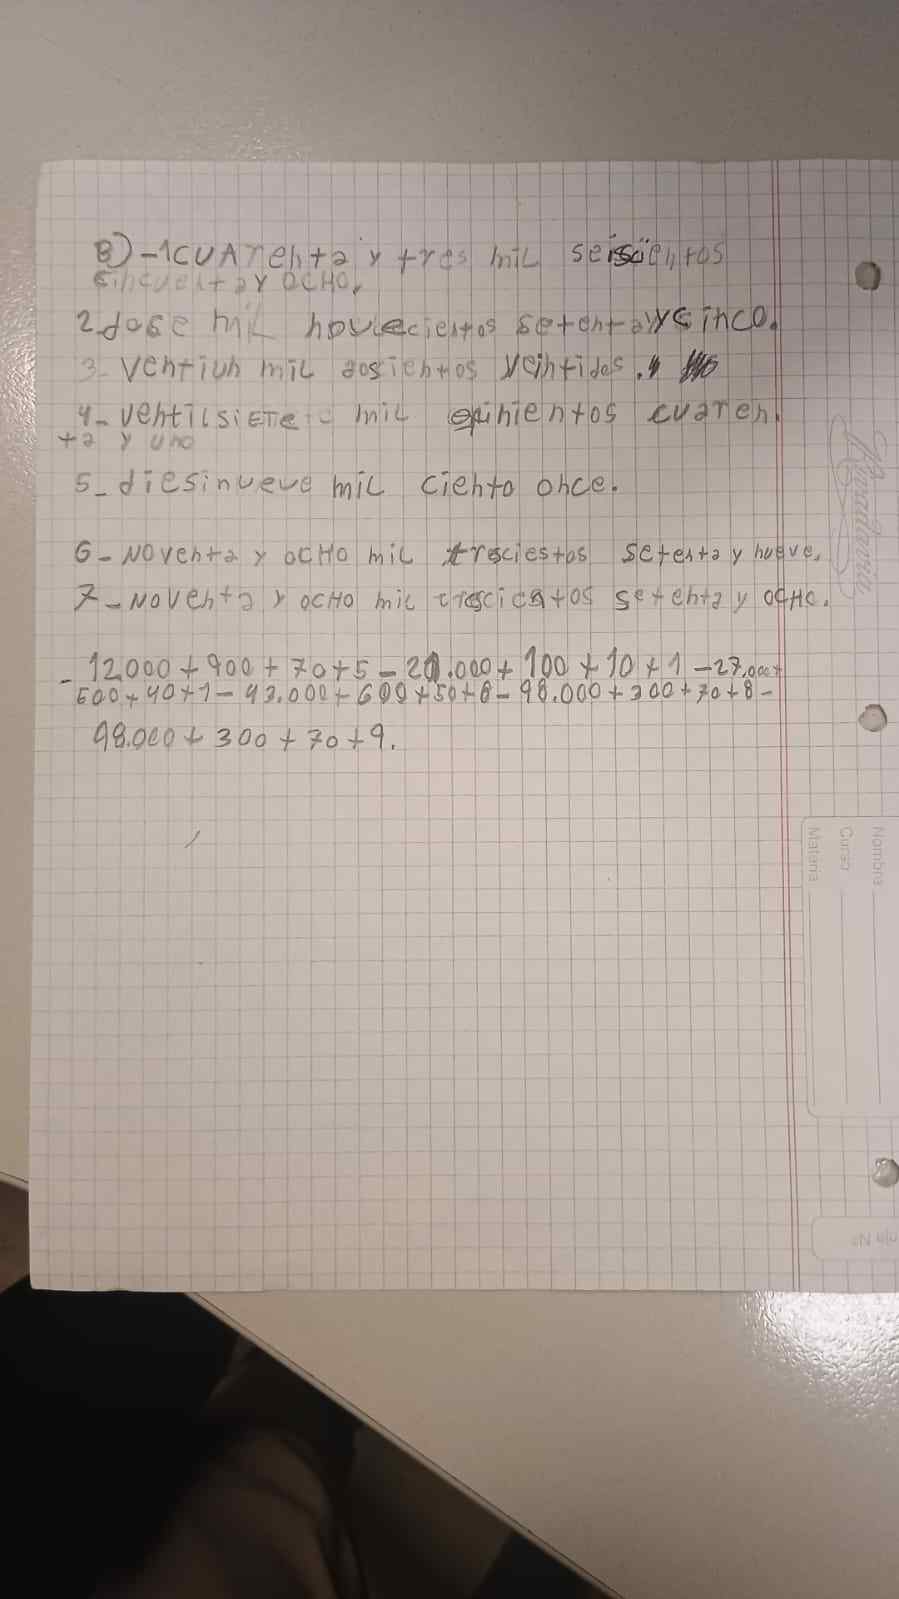 B) -1CUArenta y tres mil seiscientos
sincuenta y OCHO,
2.dose mil novecientos setenta y sinco.
3- ventiun mil dosientos veintidos.
4- ventisiete mil quinientos cuaren.
ta y uno
5- diesinueve mil ciento once.
6- Noventa y OCHO mil tresciestos setenta y nueve.
7- Noventa y OCHO mil trescientos setenta y OCHO.
- 12.000 + 900 + 70 + 5 - 20.000 + 100 + 10 + 1 - 27.000 +
500 + 40 + 1 - 43.000 + 600 + 50 + 8 - 98.000 + 300 + 70 + 8 -
98.000 + 300 + 70 + 9.
Rivadavia
Nombre
Curso
Materia